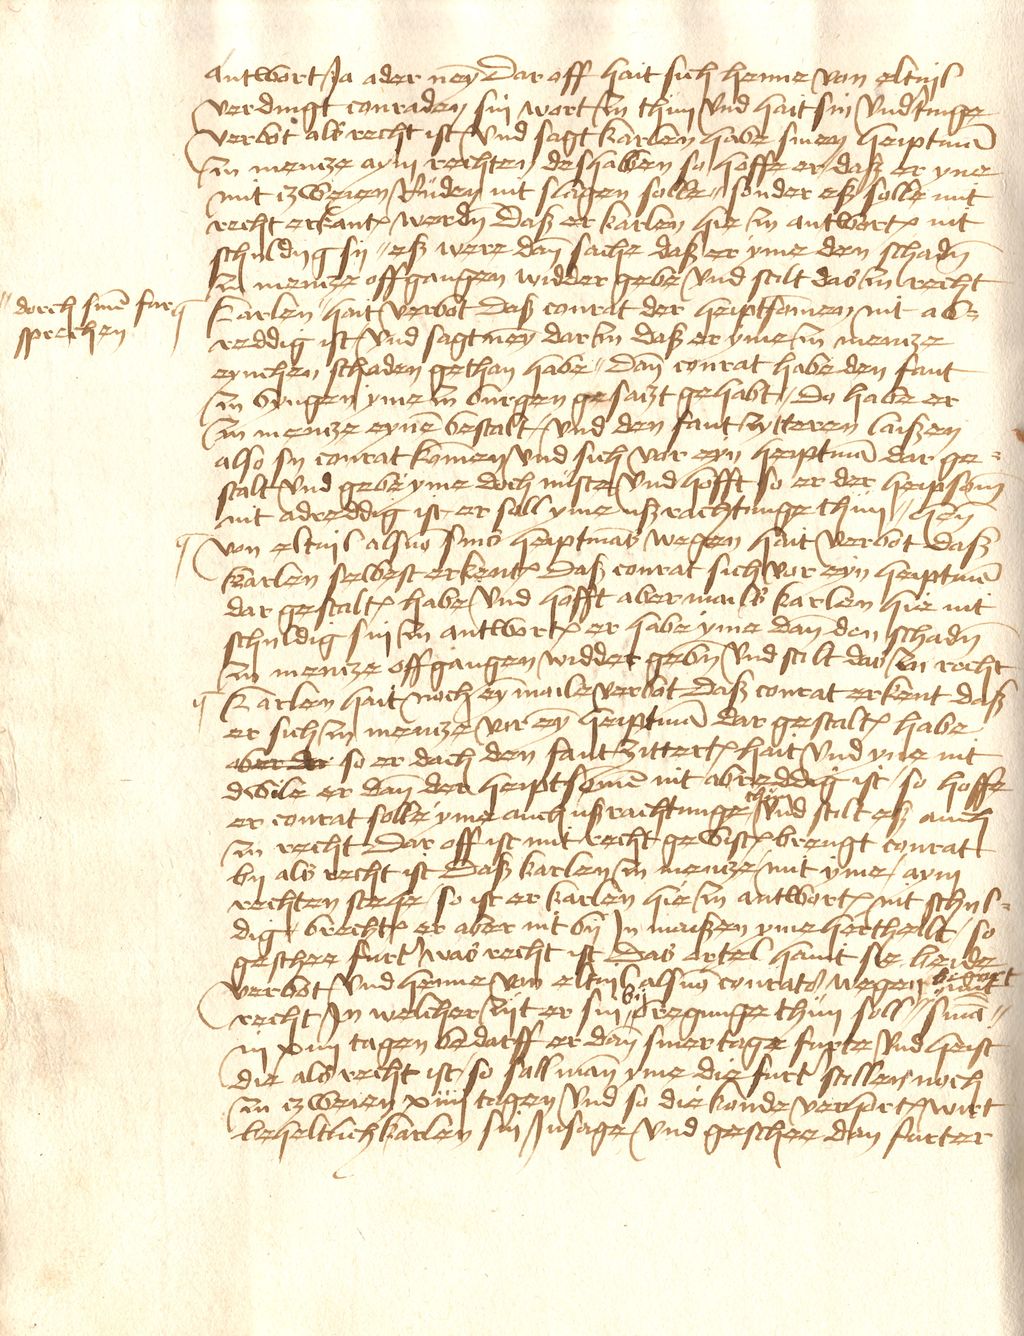 antwort Ja ader neyn Dar off hait sich henne von eltuil
verdingt conraden sin wort zu thun vnd hait sin vnd(inge
verbot als recht ist vnd sagt karlen habe sinen heiptman
zu mencze aym rechten deshalben so hoffe er daß er yme
mit czweien Ruden nit slagen solle sonder eß solle mit
recht erkant werdn Daß er karlen hie zu antwort nit
schuldig sij eß were dan sache daß er yme den schadn
zu mencze offgangen widder gebe vnd stilt das zu recht
dorch sinen fur
sprechen
karlen hait verbot Daß conrat der heiptsomen nit ab
reddig ist vnd sagt ney dar zu daß er yme zu mencze
eynchen schaden gethan habe Dan conrat habe den faut
zu byngen yme zu burgen gesatzt gehabt Do habe er
zu mencze eynen bestalt vnd den faut zytteren laißen
also sij conrat komen vnd sich vor eyn heiptman dar ge
stalt vnd gebe yme doch nuste vnd hofft so er der heiptsom
nit abreddig ist er soll yme ußrachtunge thun hen
von eltuil als von sins heiptmans wegen hait verbot Daß
karlen selbest erkent Daß conrat sich vor eyn heiptman
dar gestalt habe vnd hofft abermails karlen hie nit
schuldig sij zu antwort er habe yme dan den schadn
zu mencze offgangen widder gebn vnd stilt das zu recht
karlen hait noch ey maile verbot Daß conrat erkent daß
er sich zu mencze vor ey heiptman dar gestalt habe
so er dach den faut zittert hait vnd yme nit
dwile er dan der heiptsomen nit abreddig ist so hoffe
er conrat solle yme auch ußrachtunge thun vnd stilt eß auch
zu recht Dar off ist mit recht gewist brengt conrat
bij als recht ist Daß karlen zu mencze mit yme aym
rechten stehe so ist er karlen hie zu antwort nit schul
dig brecht er aber nit bij In maißen yme hertheilt so
geschee furt was recht ist Das ortel haint sie beide
verbot vnd henne von eltuil als von conrats wegen begert
recht In welcher zijt er sin bijbregunge thun soll sma
in xiiij tagen bedarff er dan siner tage furte vnd heist
die als recht ist so sall man yme die furt stillen noch
zu czweien xiiij tagen vnd so die konde verhort wirt
beheltlich karlen sin Insage vnd geschee dan furter